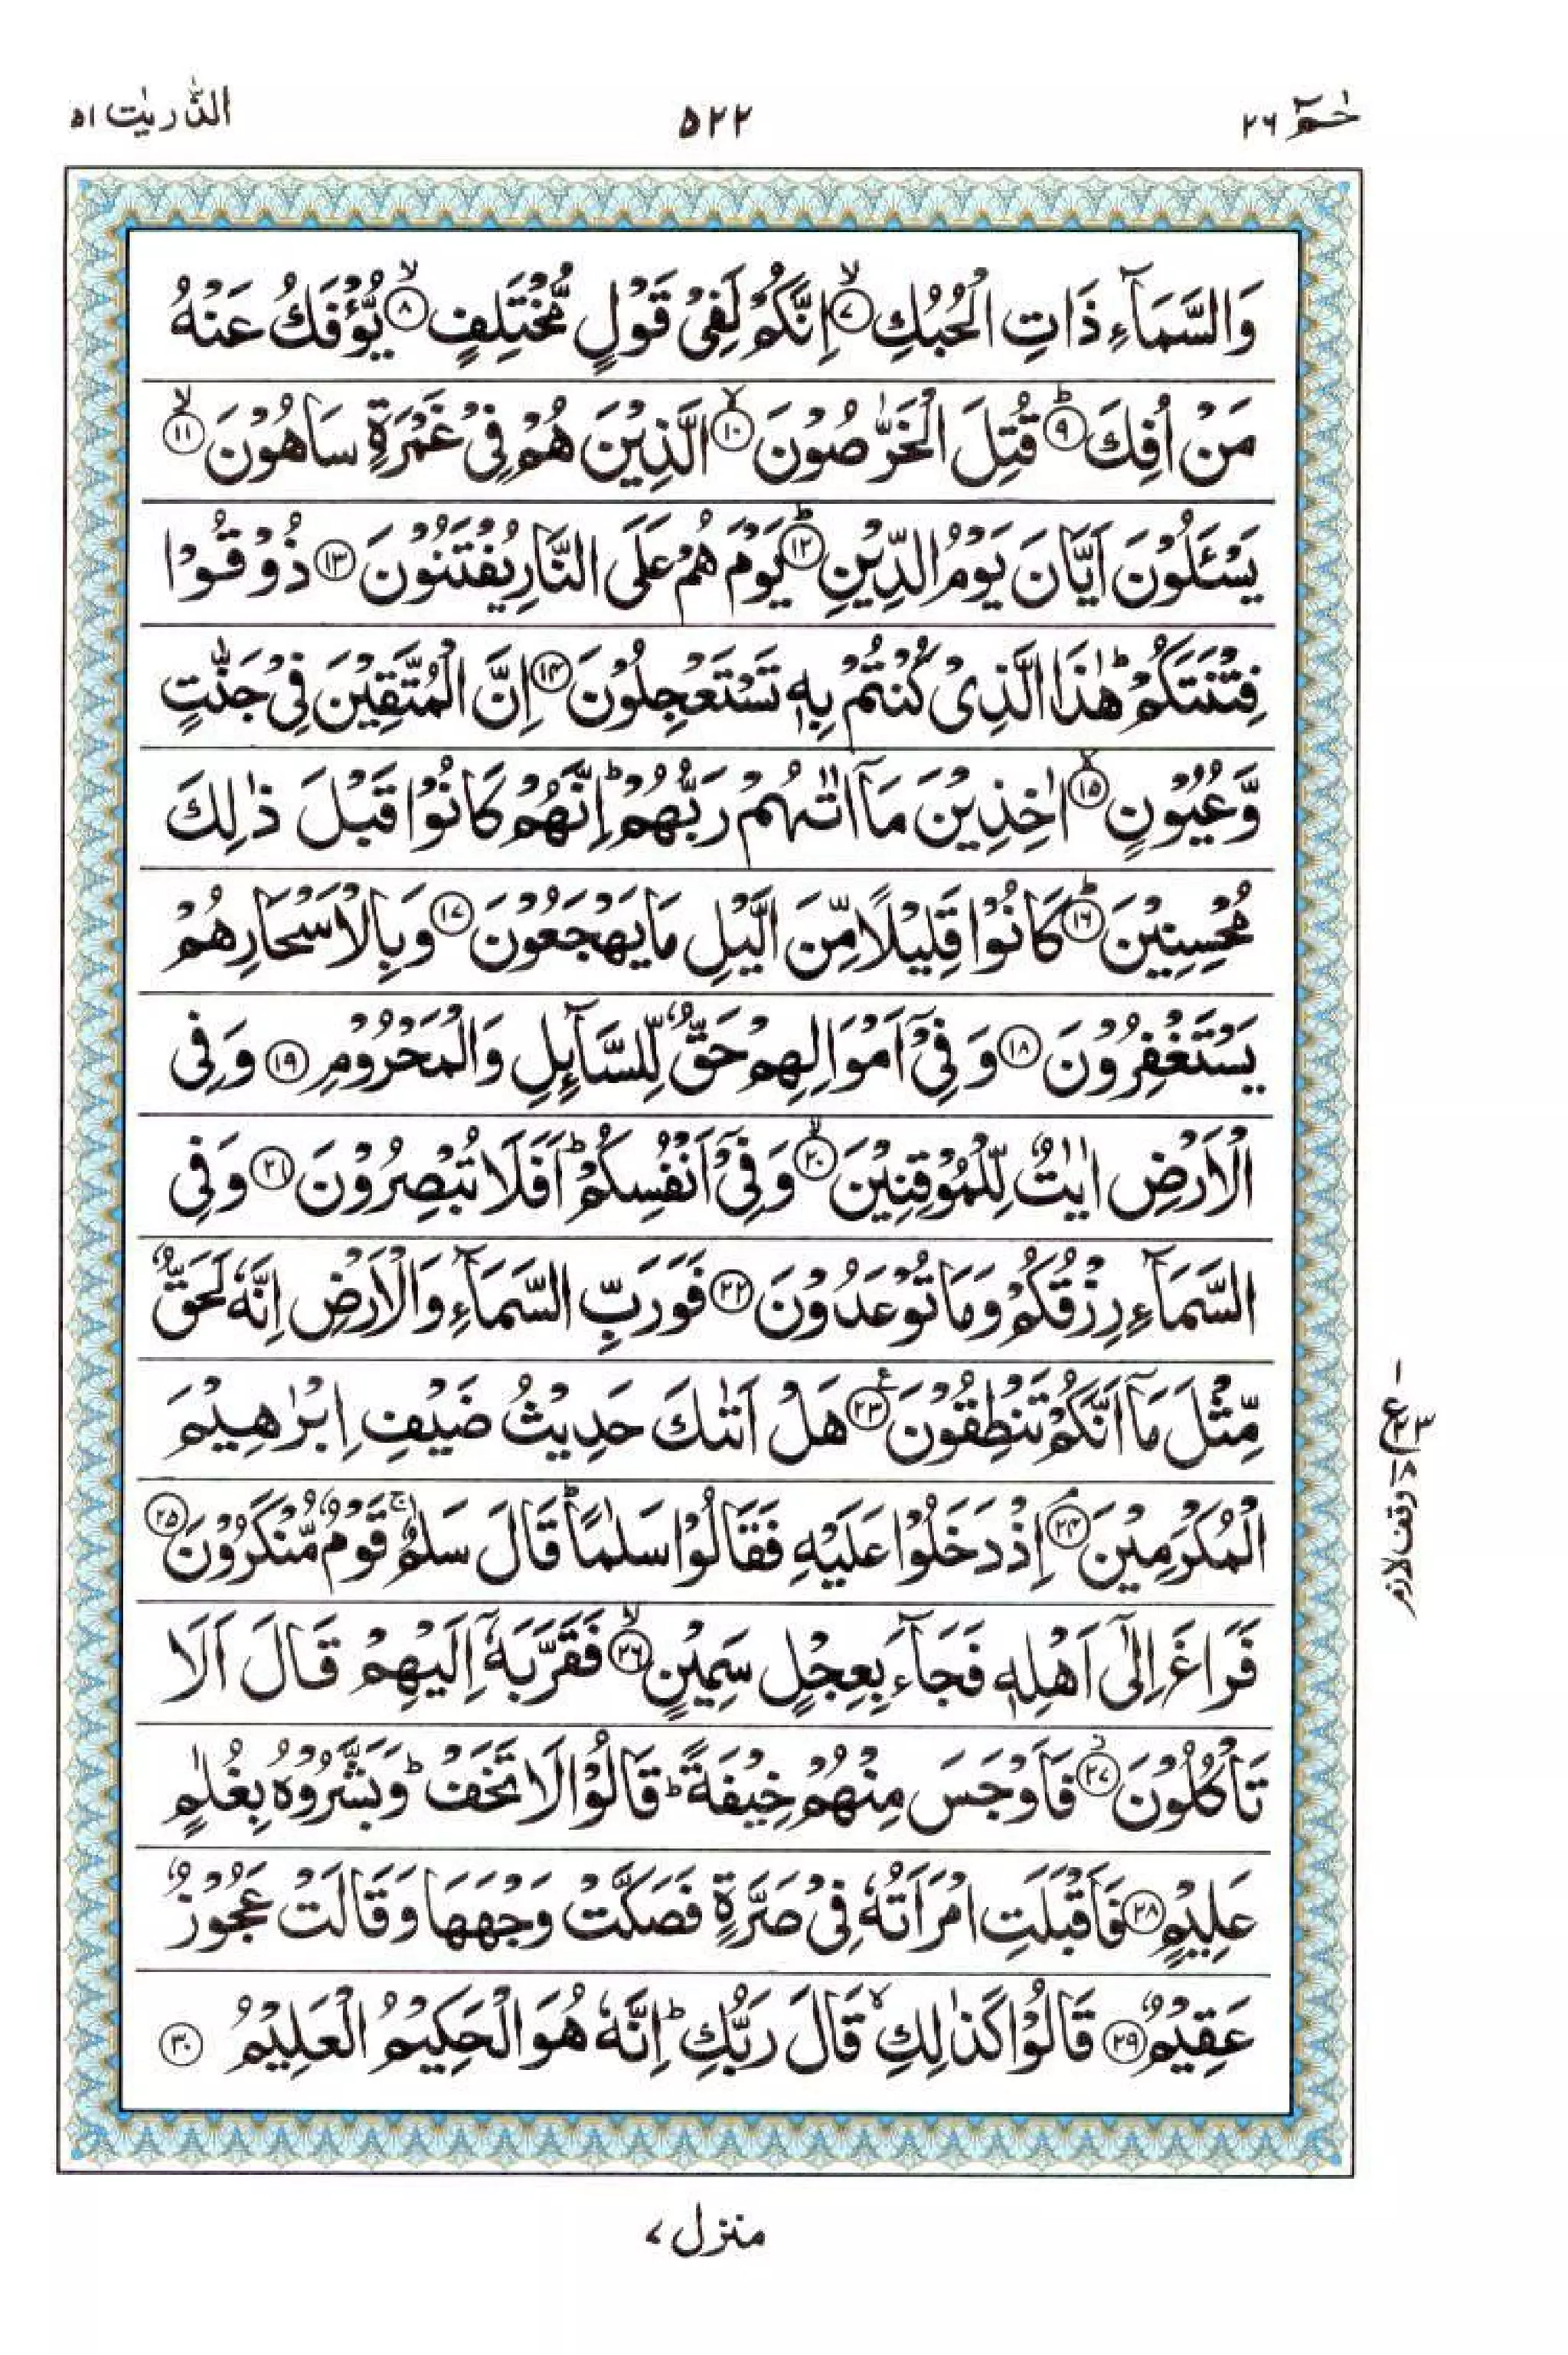 حٰمٓ ٢٦
٥٢٢
الذّٰریٰت ٥١
وَالسَّمَآءِ ذَاتِ الْحُبُكِ ۙ‏﴿۷﴾ اِنَّكُمْ لَفِیْ قَوْلٍ مُّخْتَلِفٍ ۙ‏﴿۸﴾ یُّؤْفَكُ عَنْهُ
مَنْ اُفِكَ ؕ‏﴿۹﴾ قُتِلَ الْخَرّٰصُوْنَ ۙ‏﴿۱۰﴾ الَّذِیْنَ هُمْ فِیْ غَمْرَةٍ سَاهُوْنَ ۙ‏﴿۱۱﴾
یَسْـَٔلُوْنَ اَیَّانَ یَوْمُ الدِّیْنِ ؕ‏﴿۱۲﴾ یَوْمَ هُمْ عَلَی النَّارِ یُفْتَنُوْنَ ﴿۱۳﴾ ذُوْقُوْا
فِتْنَتَكُمْ ؕ هٰذَا الَّذِیْ كُنْتُمْ بِهٖ تَسْتَعْجِلُوْنَ ﴿۱۴﴾ اِنَّ الْمُتَّقِیْنَ فِیْ جَنّٰتٍ
وَّعُیُوْنٍ ۙ‏﴿۱۵﴾ اٰخِذِیْنَ مَاۤ اٰتٰىهُمْ رَبُّهُمْ ؕ اِنَّهُمْ كَانُوْا قَبْلَ ذٰلِكَ
مُحْسِنِیْنَ ؕ‏﴿۱۶﴾ كَانُوْا قَلِیْلًا مِّنَ الَّیْلِ مَا یَهْجَعُوْنَ ﴿۱۷﴾ وَبِالْاَسْحَارِ هُمْ
یَسْتَغْفِرُوْنَ ﴿۱۸﴾ وَفِیْۤ اَمْوَالِهِمْ حَقٌّ لِّلسَّآىِٕلِ وَالْمَحْرُوْمِ ﴿۱۹﴾ وَفِی
الْاَرْضِ اٰیٰتٌ لِّلْمُوْقِنِیْنَ ۙ‏﴿۲۰﴾ وَفِیْۤ اَنْفُسِكُمْ ؕ اَفَلَا تُبْصِرُوْنَ ﴿۲۱﴾ وَفِی
السَّمَآءِ رِزْقُكُمْ وَمَا تُوْعَدُوْنَ ﴿۲۲﴾ فَوَرَبِّ السَّمَآءِ وَالْاَرْضِ اِنَّهٗ لَحَقٌّ
مِّثْلَ مَاۤ اَنَّكُمْ تَنْطِقُوْنَ ﴿۲۳﴾ هَلْ اَتٰىكَ حَدِیْثُ ضَیْفِ اِبْرٰهِیْمَ
الْمُكْرَمِیْنَ ۘ‏﴿۲۴﴾ اِذْ دَخَلُوْا عَلَیْهِ فَقَالُوْا سَلٰمًا ؕ قَالَ سَلٰمٌ ۚ قَوْمٌ مُّنْكَرُوْنَ ﴿۲۵﴾
فَرَاغَ اِلٰۤی اَهْلِهٖ فَجَآءَ بِعِجْلٍ سَمِیْنٍ ۙ‏﴿۲۶﴾ فَقَرَّبَهٗۤ اِلَیْهِمْ قَالَ اَلَا
تَاْكُلُوْنَ ﴿۲۷﴾ فَاَوْجَسَ مِنْهُمْ خِیْفَةً ؕ قَالُوْا لَا تَخَفْ ؕ وَبَشَّرُوْهُ بِغُلٰمٍ
عَلِیْمٍ ﴿۲۸﴾ فَاَقْبَلَتِ امْرَاَتُهٗ فِیْ صَرَّةٍ فَصَكَّتْ وَجْهَهَا وَقَالَتْ عَجُوْزٌ
عَقِیْمٌ ﴿۲۹﴾ قَالُوْا كَذٰلِكِ ۙ قَالَ رَبُّكِ ؕ اِنَّهٗ هُوَ الْحَكِیْمُ الْعَلِیْمُ ﴿۳۰﴾
وقف لازم
منزل ۷